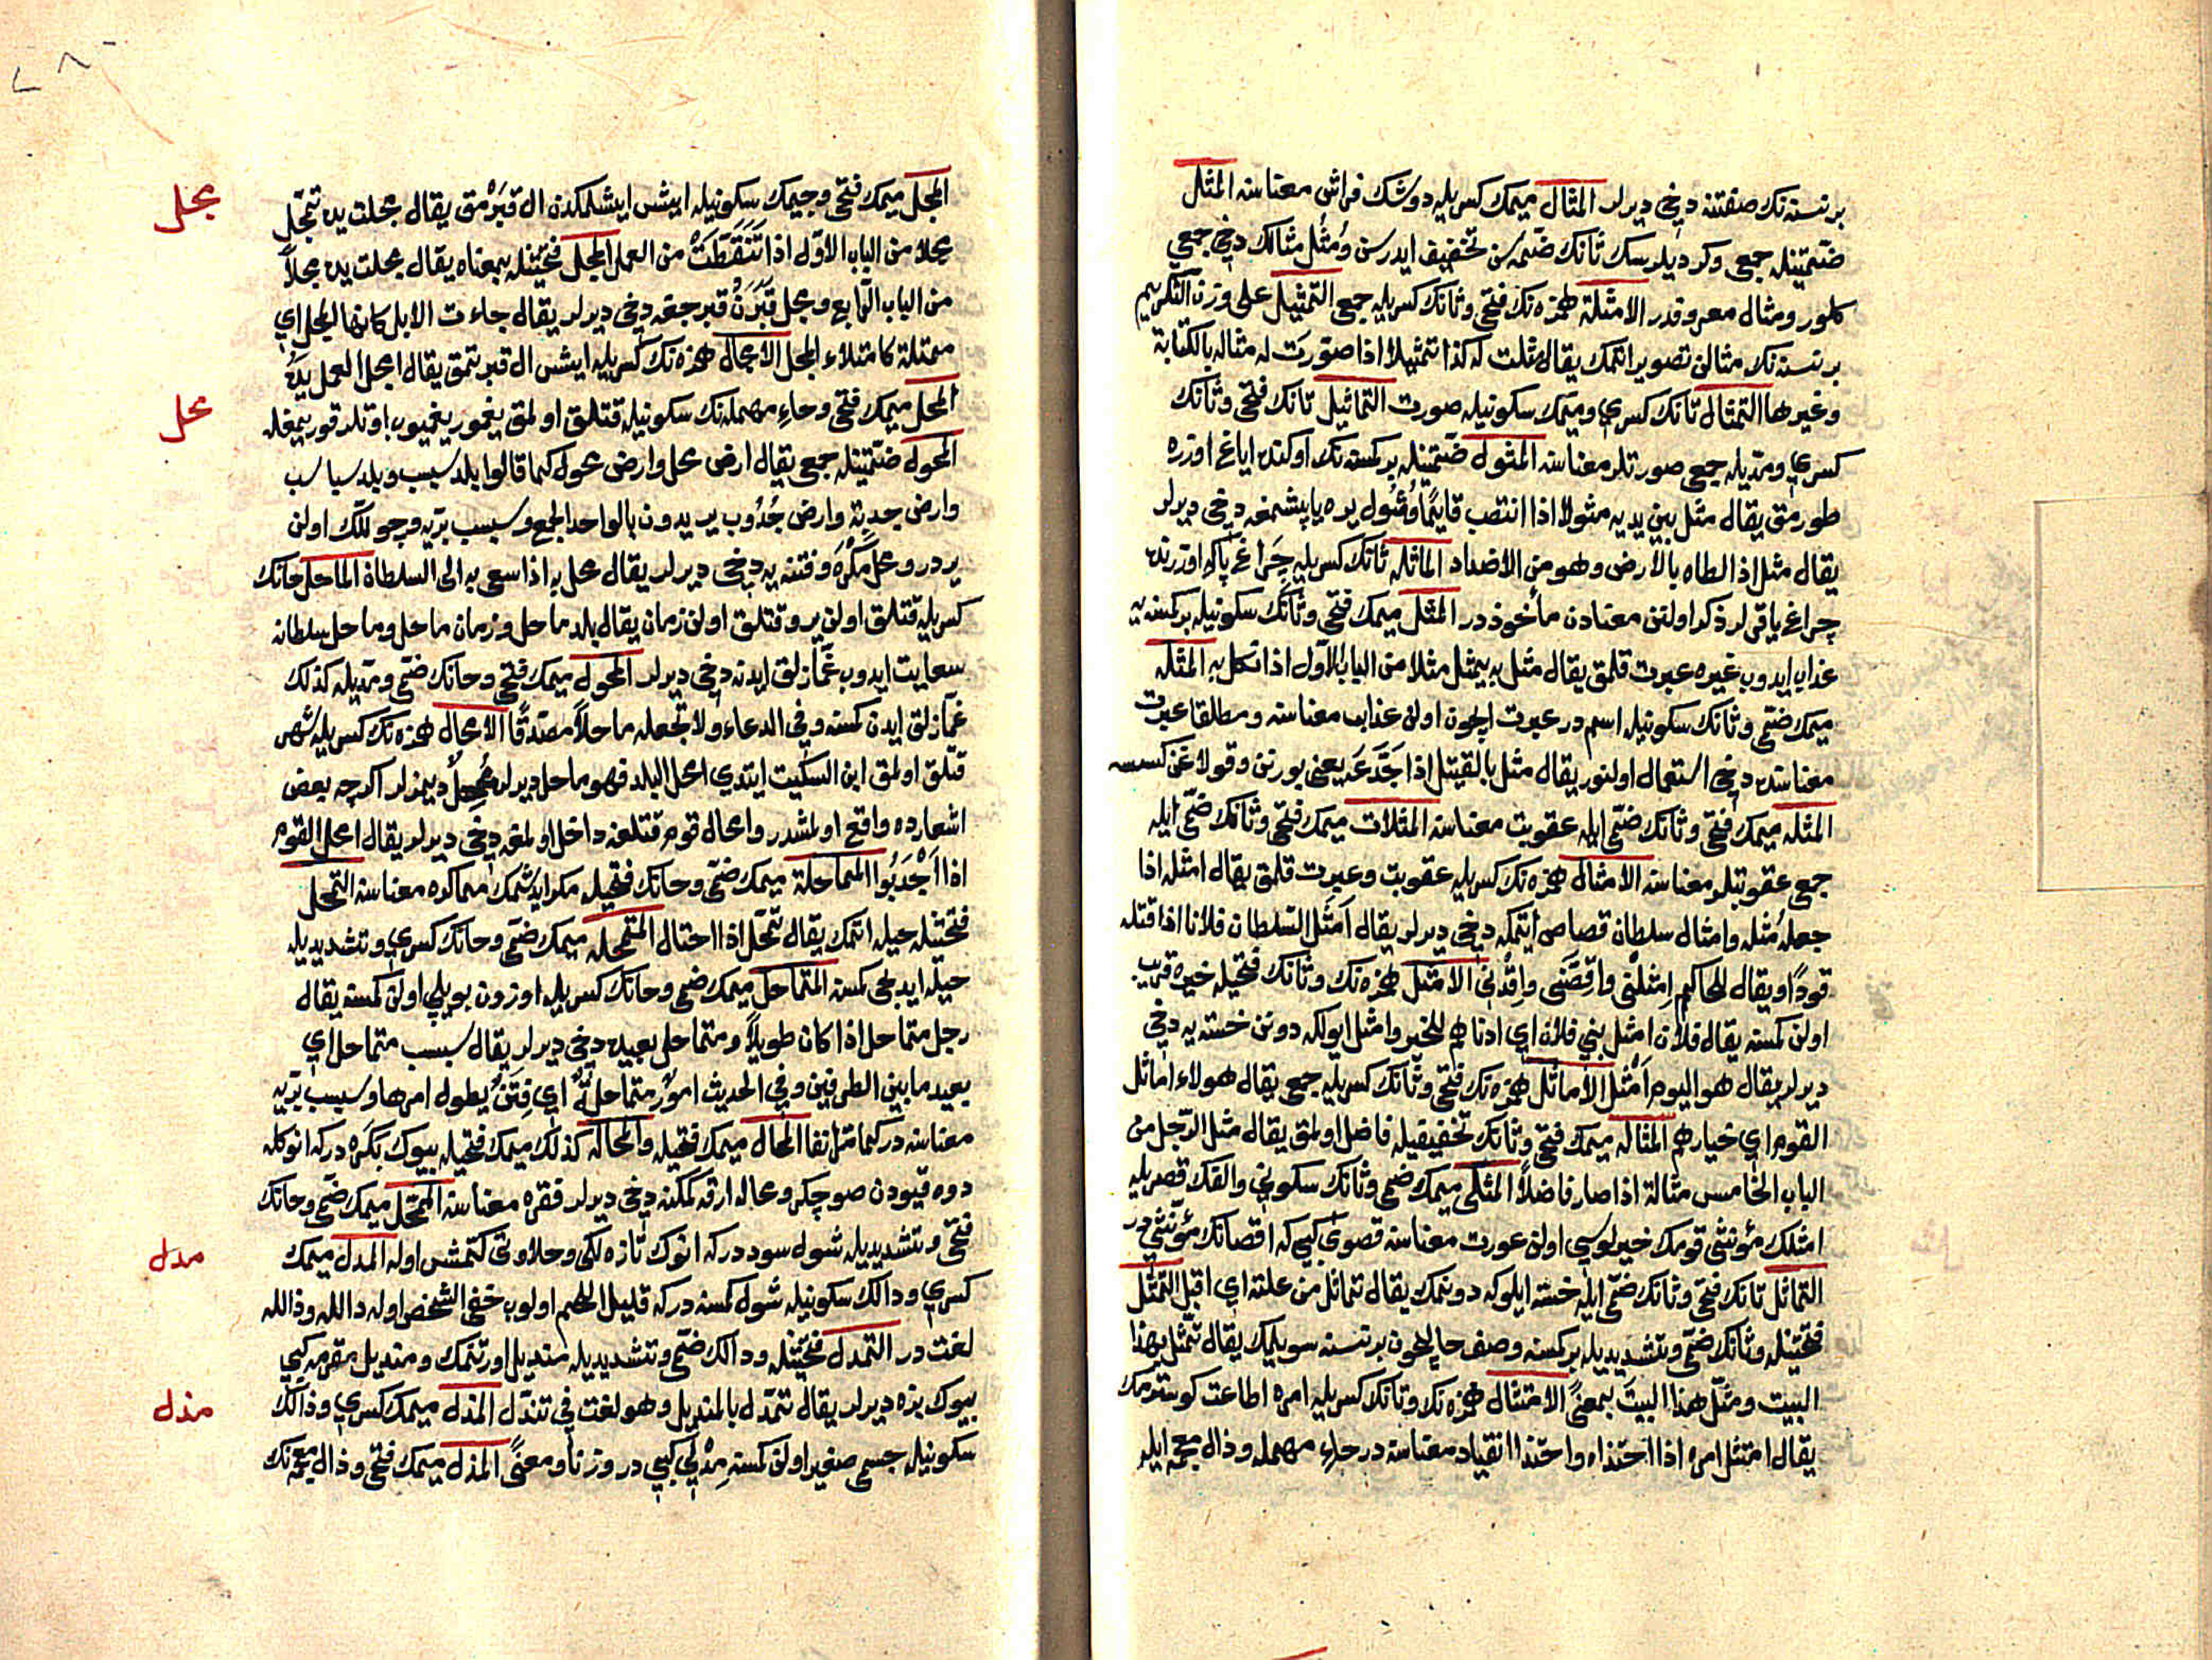 بر نسنه نك صفتنه دخي ديرلر المثال ميمك كسريله دوشك فراش معناسنه المثل
ضمتينله جمعي وكر ديلرسك ثانك ضمه سن تخفيف ايدرسن ومثل مثالك دخي جمعي
كلور ومثال معروفدر الامثلة همزه نك فتحي وثانك كسريله جمعي التمثيل على وزن التكريم
بر نسنه نك مثالن تصوير اتمك يقال مثلت له كذا تمثيلا اذا صورت له مثاله بالكتابة
وغيرها التمثال تانك كسري وميمك سكونيله صورت التماثيل تانك فتحي وثانك
كسري ومديله جمعي صورتلر معناسنه المثول ضمتينله بر كمسنه نك اوكنده اياغ اوزره
طورمق يقال مثل بين يديه مثولا اذا انتصب قايما ومثول يره ياپشمغه دخي ديرلر
يقال مثل اذا لطاه بالارض وهو من الاضداد الماثله ثانك كسريله چراغ پاكه اوزرنده
چراغ ياقرلر ذكر اولنن معنادن مأخوذدر المثل ميمك فتحي وثانك سكونيله بر كمسنه يه
عذاب ايدوب غيره عبرت قلمق يقال مثل به يمثل مثلا من الباب الاول اذا نكل به المثله
ميمك ضمي وثانك سكونيله اسمدر عبرت ايچون اولن عذاب معناسنه ومطلقا عبرت
معناسنده دخي استعمال اولنور يقال مثل بالقتيل اذا جدعه يعني بورنن وقولاغن كسسه
المثله ميمك فتحي وثانك ضمي ايله عقوبت معناسنه المثلات ميمك فتحي وثانك ضمي ايله
جمعي عقوبتلر معناسنه الامثال همزه نك كسريله عقوبت وعبرت قلمق يقال امثله اذا
جعله مثله وامثال سلطان قصاص ايتمكه دخي ديرلر يقال امثل السلطان فلانا اذا قتله
قودا ويقال للحاكم امثلني واقصني واقدني الامثل همزه نك وثانك فتحيله خيره قريب
اولن كمسنه يقال فلان امثل بني فلان اي ادناهم للخير وامثل ايولكه دونن خسته يه دخي
ديرلر يقال هو اليوم امثل الاماثل همزه نك فتحي وثانك كسريله جمعي يقال هولاء اماثل
القوم اي خيارهم المثاله ميمك فتحي وثانك تخفيفيله فاضل اولمق يقال مثل الرجل من
الباب الخامس مثالة اذا صار فاضلا المثلى ميمك ضمي وثانك سكوني والفك قصريله
امثلك مؤنثى قومك خيرلوسي اولن عورت معناسنه قصوى كبي كه اقصانك مؤنثي در
التماثل تانك فتحي وثانك ضمي ايله خسته ايلوكه دونمك يقال تماثل من علته اي اقبل التمثل
فتحتينله وثانك ضمي وتشديديله بر كمسنه وصف حالچون بر نسنه سويلمك يقال تمثل بهذا
البيت ومثل هذا البيت بمعنى الامتثال همزه نك وتانك كسريله امره اطاعت كوسترمك
يقال امتثل امره اذا احتذاه واحتذا انقياد معناسنه در حاء مهمله وذال معجمه ايله
المجل ميمك فتحي وجيمك سكونيله ايش ايشلمكدن ال قبرمق يقال مجلت يده تمجل
مجل
مجلا من الباب الاول اذا تنقطت من العمل المجل فتحتينله بمعناه يقال مجلت يده مجلا
من الباب الرابع ومجل قبرن قبرجغه دخي ديرلر يقال جاءت الابل كانها المجل اي
ممتلة كامتلاء المجل الامجال همزه نك كسريله ايش ال قبرتمق يقال امجل العمل يده
المحل ميمك فتحي وحاء مهمله نك سكونيله قتلق اولمق يغمور يغميوب اوتلر قوريمغله
محل
المحول ضمتينله جمعي يقال ارض محل وارض محول كما قالوا بلد سبسب وبلد سباسب
وارض جدبة وارض جدوب يريدون بالواحد الجمع وسبسب بريه وچوللك اولن
يردر ومحل مكره وفتنه يه دخي ديرلر يقال محل به اذا سعى به الى السلطان الماحل حانك
كسريله قتلق اولن ير وقتلق اولن زمان يقال بلد ماحل وزمان ماحل وماحل سلطانه
سعايت ايدوب غمازلق ايدنه دخي ديرلر المحول ميمك فتحي وحانك ضمي ومديله كذلك
غمازلق ايدن كمسنه وفي الدعاء ولا تجعله ماحلا مصدقا الامحال همزه نك كسريله شهر
قتلق اولمق ابن السكيت ايتدي امحل البلد فهو ماحل ديرلر ممحل ديمزلر اكرچه بعض
اشعارده واقع اولمشدر وامحال قوم قتلغه داخل اولمغه دخي ديرلر يقال امحل القوم
اذا اجدبوا المماحلة ميمك ضمي وحانك فتحيله مكر ايدشمك مماكره معناسنه التمحل
فتحتينله حيله اتمك يقال تمحل اذا احتال المتمحله ميمك ضمي وحانك كسري وتشديديله
حيله ايدجي كمسنه المتماحل ميمك ضمي وحانك كسريله اوزون بويلي اولن كمسنه يقال
رجل متماحل اذا كان طويلا ومتماحل بعيده دخي ديرلر يقال سبسب متماحل اي
بعيد ما بين الطرفين وفي الحديث امور متماحلة اي فتن يطول امرها وسبسب بريه
معناسنه در كما مر انفا المحال ميمك فتحيله والمحاله كذلك ميمك فتحيله بيوك بكره در كه انوكله
دوه قيودن صو چكر ومحاله ارقه كمكنه دخي ديرلر فقره معناسنه الممحل ميمك ضمي وحانك
فتحي وتشديديله شول سوددر كه انوك تازه لكي وحلاوتي كتمش اوله المدل ميمك
مدل
كسري ودالك سكونيله شول كمسنه در كه قليل اللحم اولوب خفي الشخص اوله دالله وذالله
لغت در التمدل فتحتينله ودالك ضمي وتشديديله منديل اورتنمك ومنديل مقرمه كبي
بيوك بزه ديرلر يقال تمدل بالمنديل وهو لغت في تندل المذل ميمك كسري وذالك
مذل
سكونيله جسمي صغير اولن كمسنه مدل كبي در وزنا ومعنى المذل ميمك فتحي وذال معجمه نك